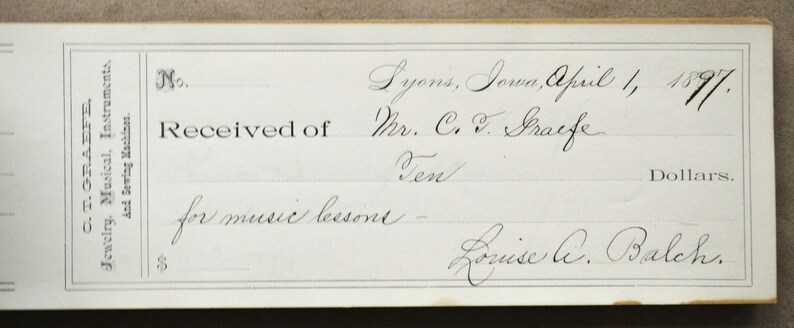 C. T. GRAEFE,
Jewelry, Musical, Instruments,
And Sewing Machines.
No.
Lyons, Iowa, April 1, 1897.
Received of Mr. C. T. Graefe
Ten Dollars.
for music lessons –
$
Louise A. Balch.